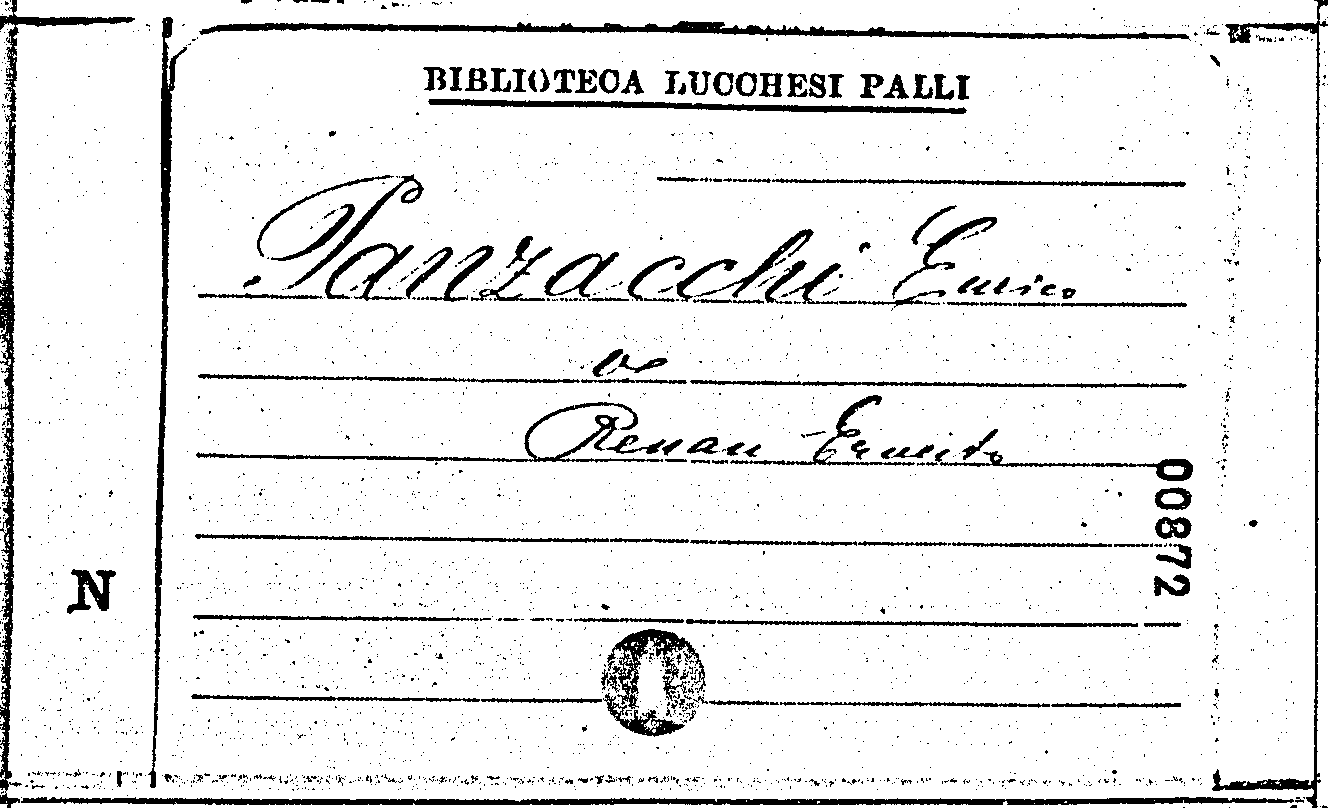 BIBLIOTECA LUCCHESI PALLI
Panzacchi Enrico
Renan Ernesto
00872
N